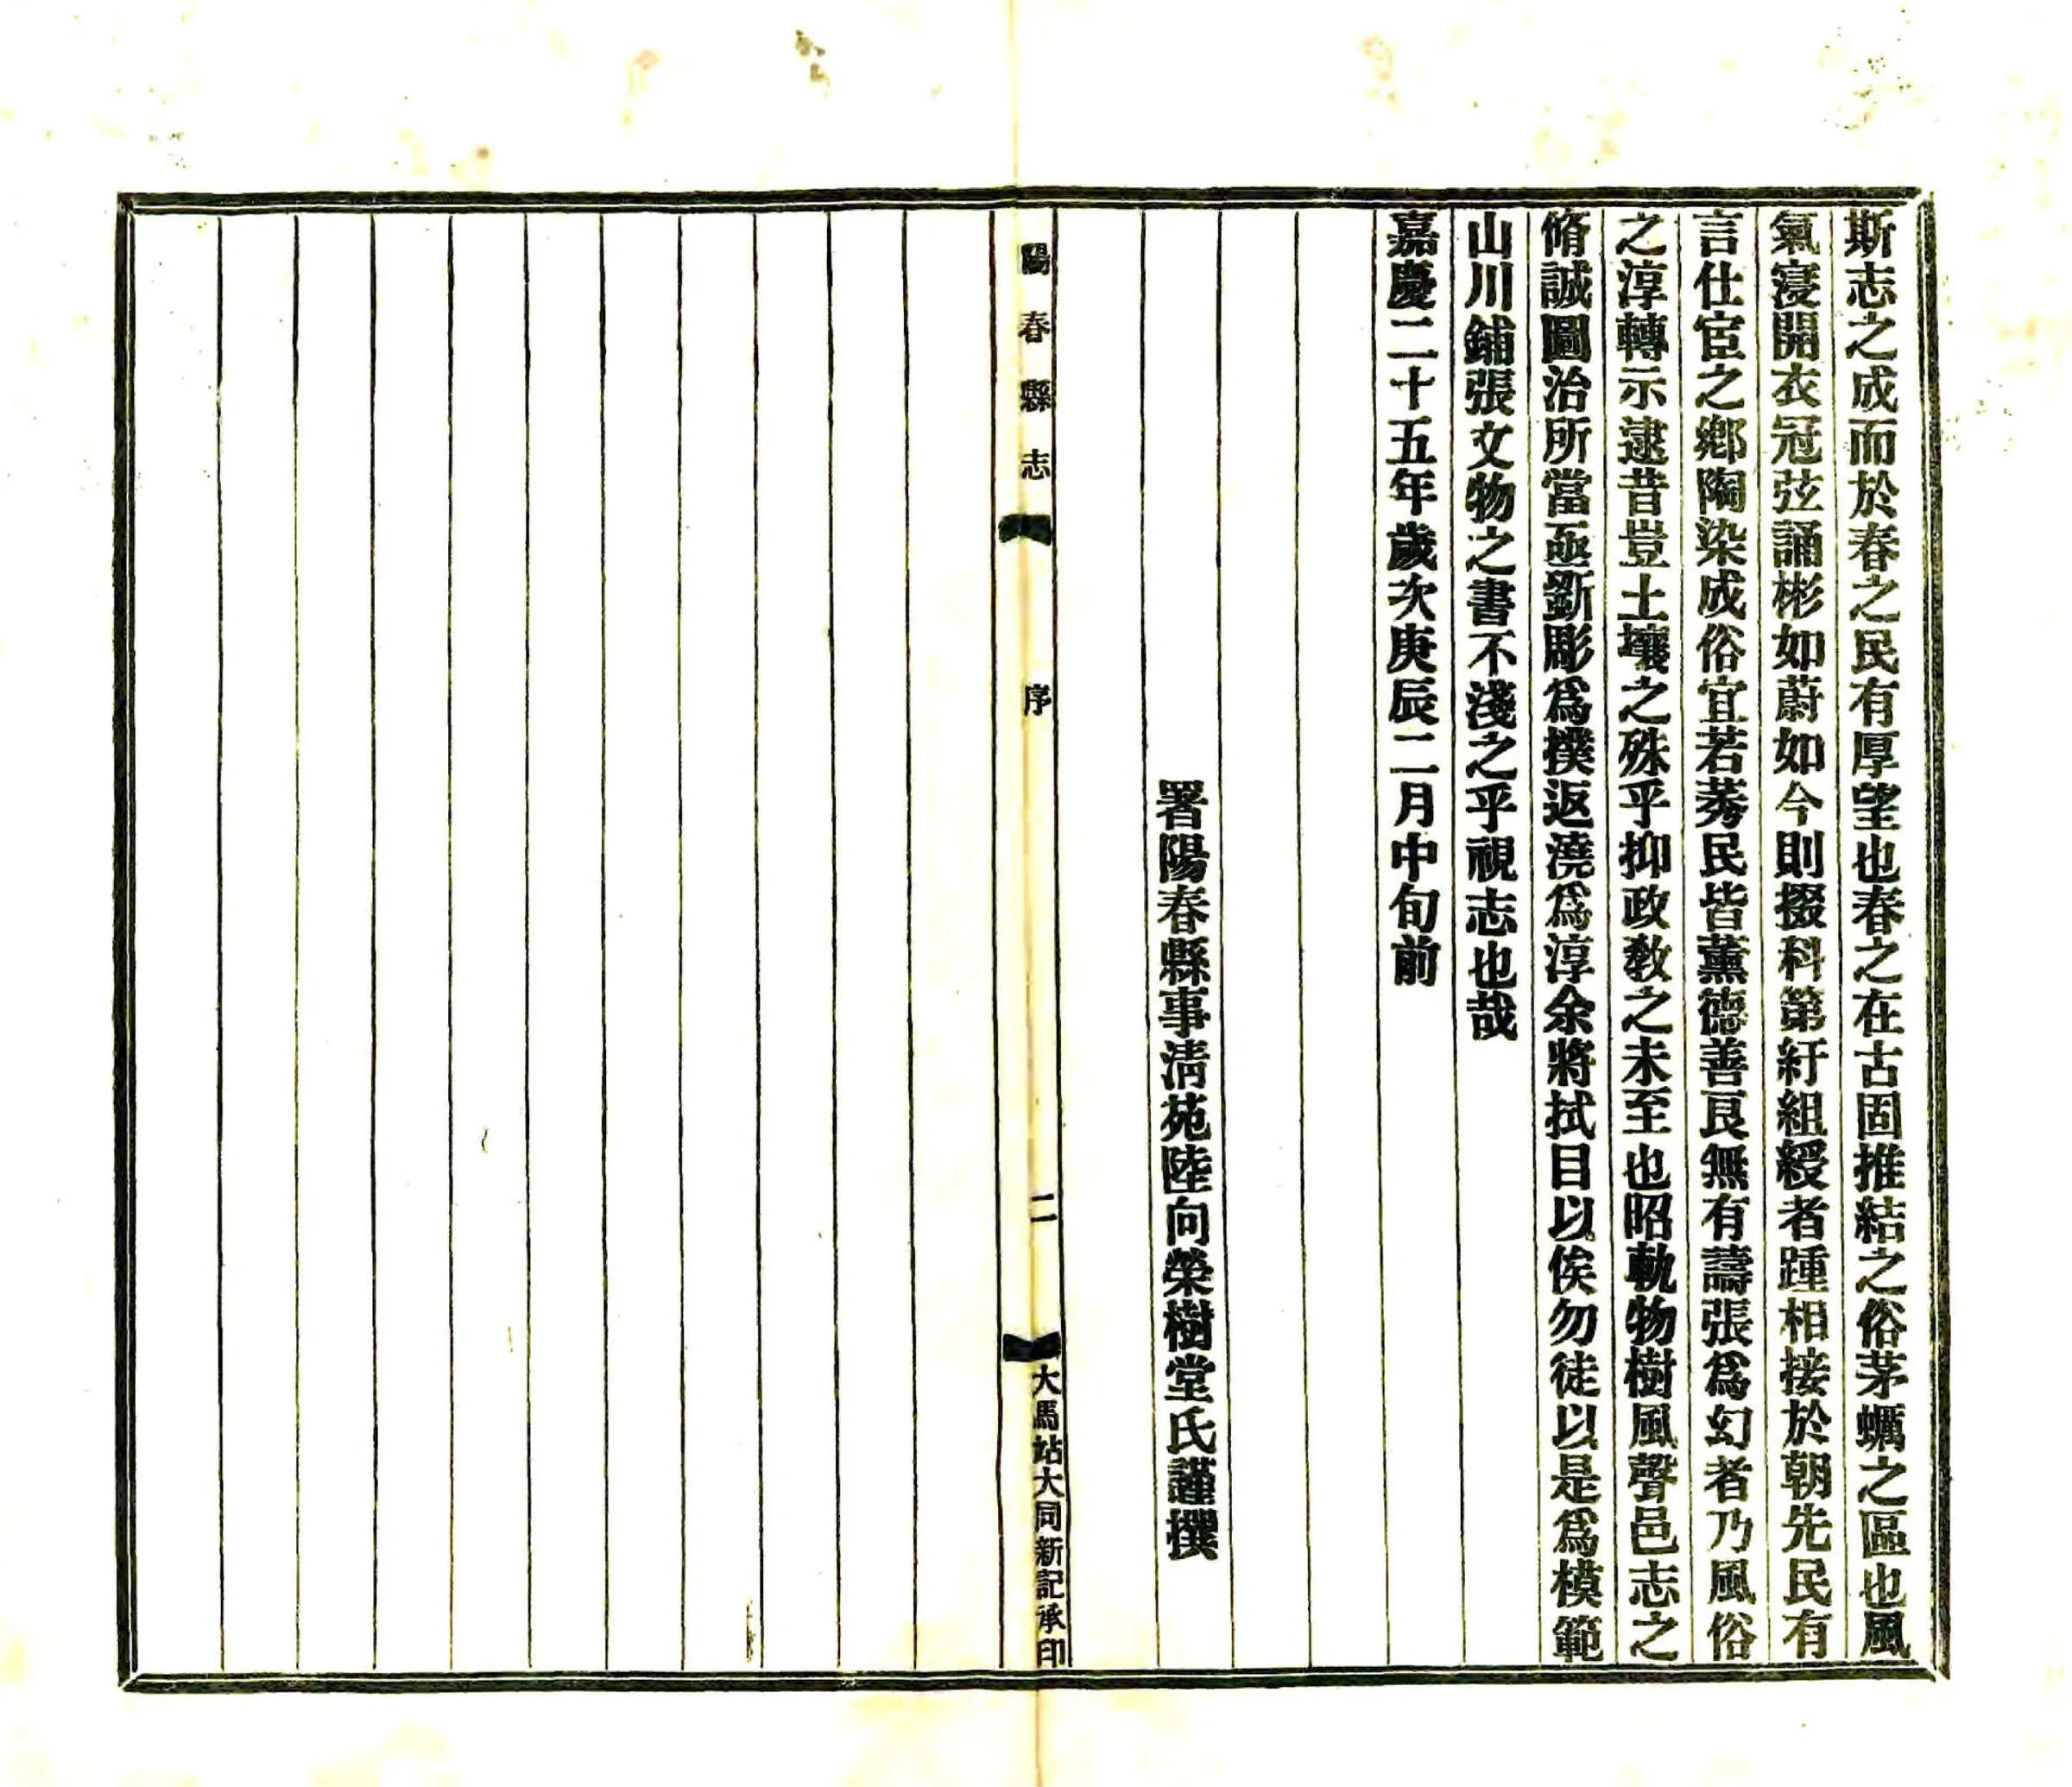 斯志之成而於春之民有厚望也春之在古固推結之俗茅蠣之區也風
氣寖開衣冠弦誦彬如蔚如今則掇科第紆組綬者踵相接於朝先民有
言仕宦之鄉陶染成俗宜若莠民皆薰德善良無有譸張爲幻者乃風俗
之淳轉示逮昔豈土壤之殊乎抑政教之未至也昭軌物樹風聲邑志之
脩誠圖治所當亟斲彫爲撲返澆爲淳余將拭目以俟勿徒以是爲模範
山川鋪張文物之書不淺之乎視志也哉
嘉慶二十五年歲次庚辰二月中旬前
署陽春縣事淸苑陸向榮樹堂氏謹撰
陽春縣志
序
二
大馬站大同新記承印